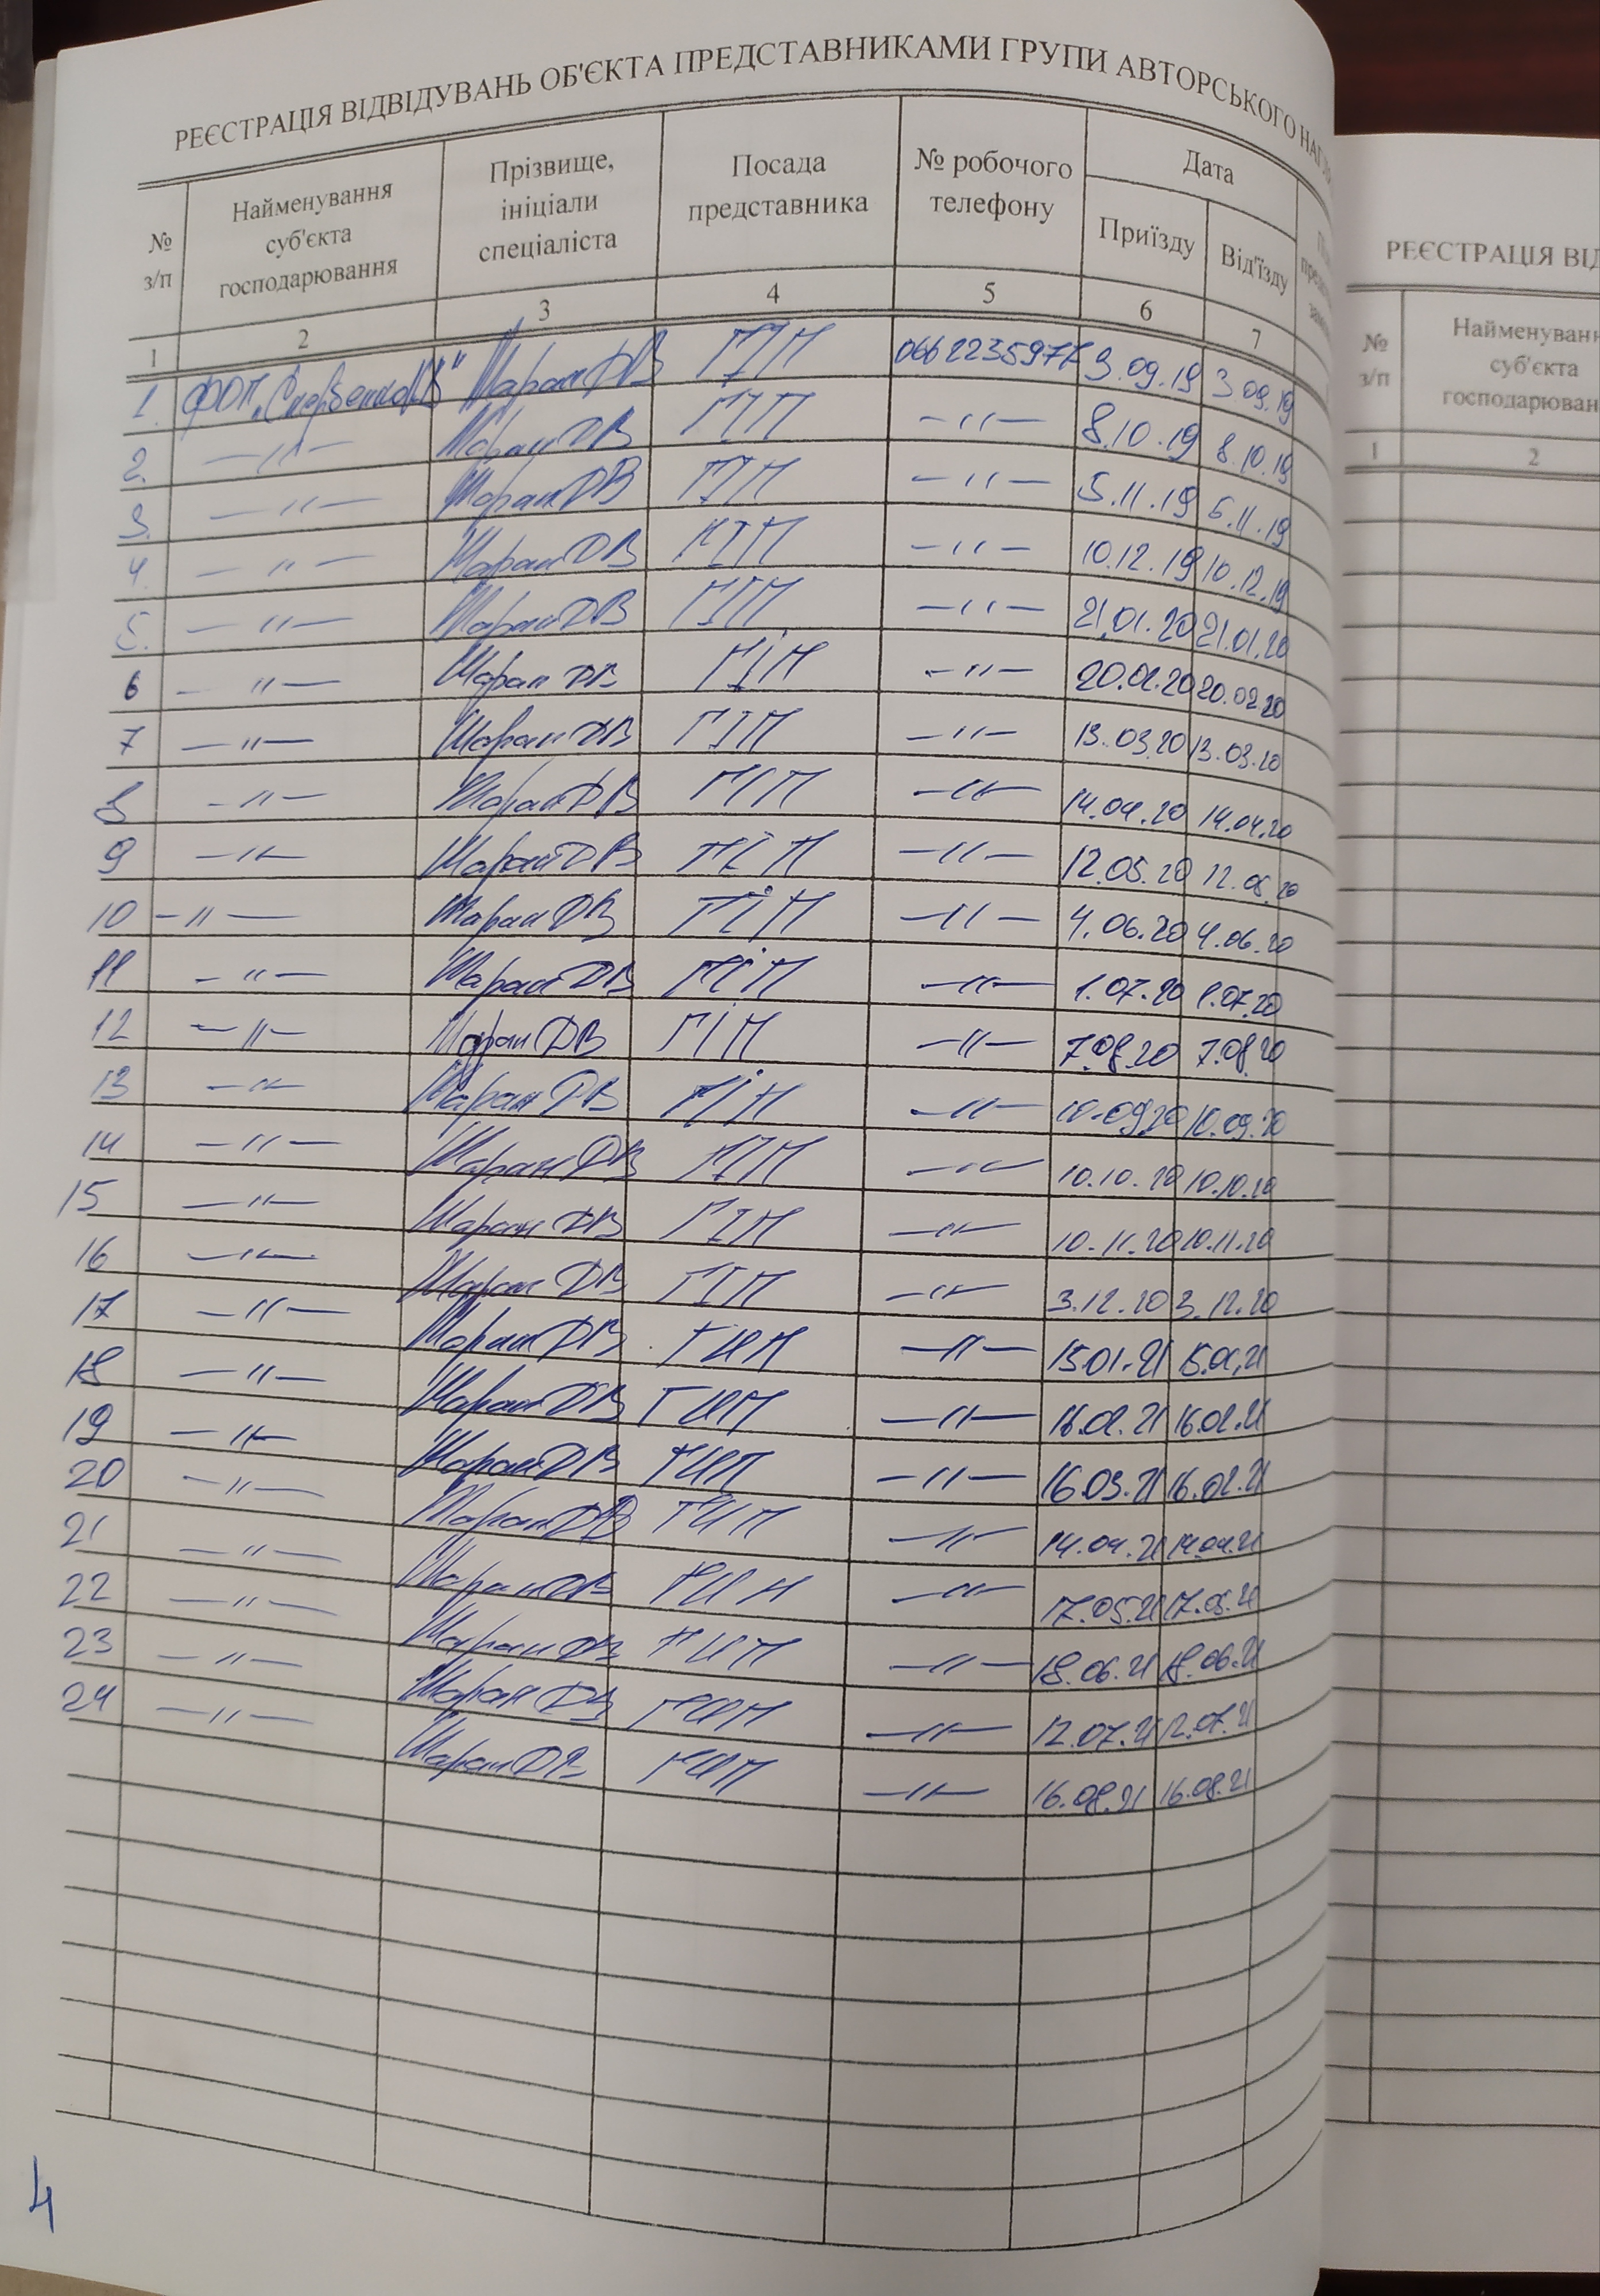 РЕЄСТРАЦІЯ ВІДВІДУВАНЬ ОБ'ЄКТА ПРЕДСТАВНИКАМИ ГРУПИ АВТОРСЬКОГО
№ з/п Найменування суб'єкта господарювання Прізвище, ініціали спеціаліста Посада представника № робочого телефону Дата Приїзду Від'їзду
1 2 3 4 5 6 7
1. ФОП Шаран ДВ ГІП 0662235977 3.09.19 3.09.19
2. —"— Шаран ДВ ГІП —"— 8.10.19 8.10.19
3. —"— Шаран ДВ ГІП —"— 5.11.19 6.11.19
4. —"— Шаран ДВ ГІП —"— 10.12.19 10.12.19
5. —"— Шаран ДВ ГІП —"— 21.01.20 21.01.20
6 —"— Шаран ДВ ГІП —"— 20.02.20 20.02.20
7 —"— Шаран ДВ ГІП —"— 13.03.20 13.03.20
8 —"— Шаран ДВ ГІП —"— 14.04.20 14.04.20
9 —"— Шаран ДВ ГІП —"— 12.05.20 12.05.20
10 —"— Шаран ДВ ГІП —"— 4.06.20 4.06.20
11 —"— Шаран ДВ ГІП —"— 1.07.20 1.07.20
12 —"— Шаран ДВ ГІП —"— 7.08.20 7.08.20
13 —"— Шаран ДВ ГІП —"— 10.09.20 10.09.20
14 —"— Шаран ДВ ГІП —"— 10.10.20 10.10.20
15 —"— Шаран ДВ ГІП —"— 10.11.20 10.11.20
16 —"— Шаран ДВ ГІП —"— 3.12.20 3.12.20
17 —"— Шаран ДВ ГИП —"— 15.01.21 15.01.21
18 —"— Шаран ДВ ГИП —"— 16.02.21 16.02.21
19 —"— Шаран ДВ ГИП —"— 16.03.21 16.02.21
20 —"— Шаран ДВ ГИП —"— 14.04.21 14.04.21
21 —"— Шаран ДВ ГИП —"— 17.05.21 17.05.21
22 —"— Шаран ДВ ГИП —"— 18.06.21 18.06.21
23 —"— Шаран ДВ ГИП —"— 12.07.21 12.07.21
24 —"— Шаран ДВ ГИП —"— 16.08.21 16.08.21
4
РЕЄСТРАЦІЯ
№ з/п
суб'єкта
1 2